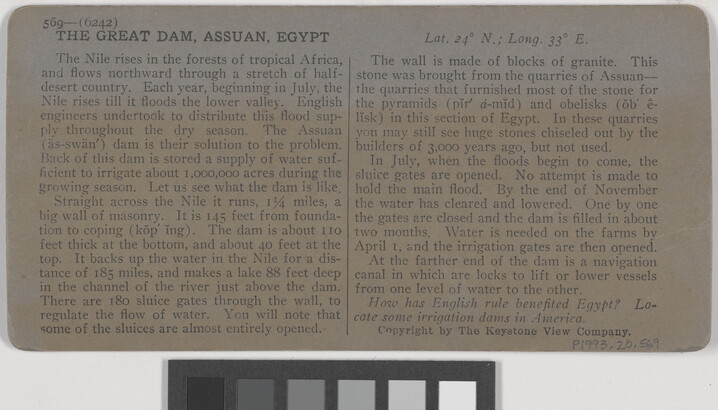 569—(6242)
THE GREAT DAM, ASSUAN, EGYPT
Lat. 24° N.; Long. 33° E.
The Nile rises in the forests of tropical Africa,
and flows northward through a stretch of half-
desert country. Each year, beginning in July, the
Nile rises till it floods the lower valley. English
engineers undertook to distribute this flood sup-
ply throughout the dry season. The Assuan
(äs-swän′) dam is their solution to the problem.
Back of this dam is stored a supply of water suf-
ficient to irrigate about 1,000,000 acres during the
growing season. Let us see what the dam is like.
Straight across the Nile it runs, 1¼ miles, a
big wall of masonry. It is 145 feet from founda-
tion to coping (kōp′ ing). The dam is about 110
feet thick at the bottom, and about 40 feet at the
top. It backs up the water in the Nile for a dis-
tance of 185 miles, and makes a lake 88 feet deep
in the channel of the river just above the dam.
There are 180 sluice gates through the wall, to
regulate the flow of water. You will note that
some of the sluices are almost entirely opened.
The wall is made of blocks of granite. This
stone was brought from the quarries of Assuan—
the quarries that furnished most of the stone for
the pyramids (pĭr′ ȧ-mĭd) and obelisks (ŏb′ ê-
lĭsk) in this section of Egypt. In these quarries
you may still see huge stones chiseled out by the
builders of 3,000 years ago, but not used.
In July, when the floods begin to come, the
sluice gates are opened. No attempt is made to
hold the main flood. By the end of November
the water has cleared and lowered. One by one
the gates are closed and the dam is filled in about
two months. Water is needed on the farms by
April 1, and the irrigation gates are then opened.
At the farther end of the dam is a navigation
canal in which are locks to lift or lower vessels
from one level of water to the other.
How has English rule benefited Egypt? Lo-
cate some irrigation dams in America.
Copyright by The Keystone View Company.
P1993.20.569